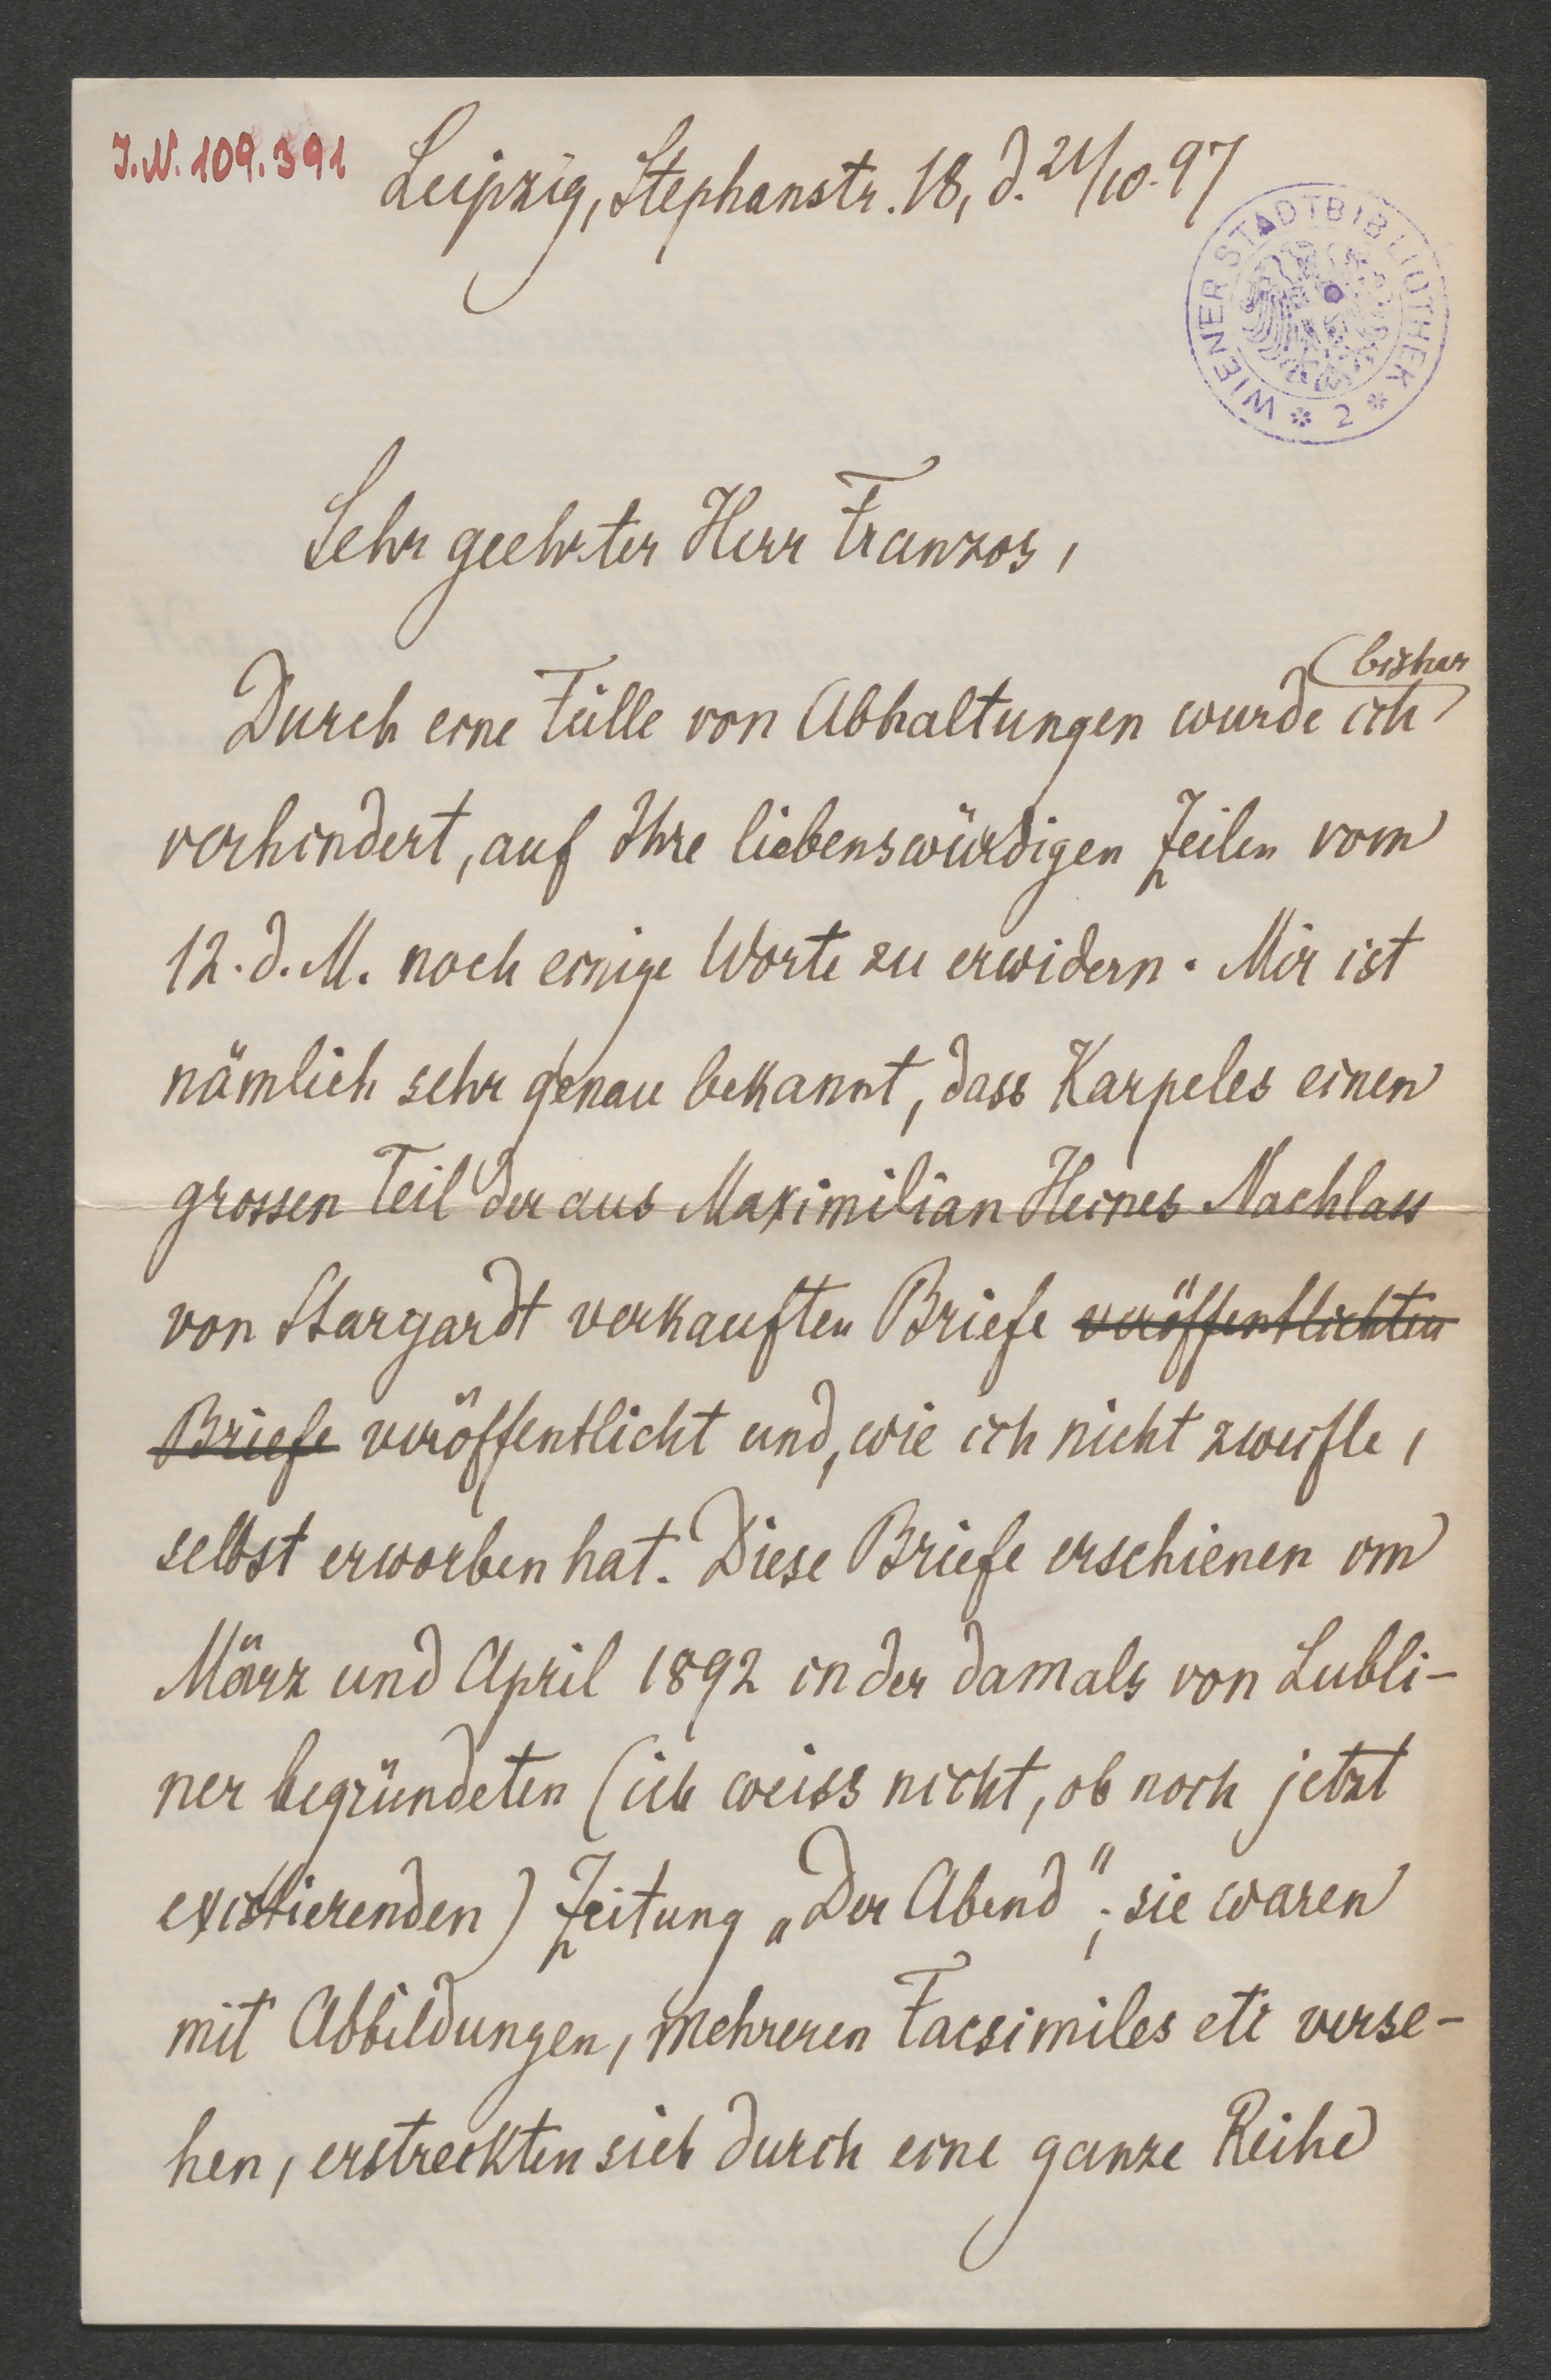 J.N. 109.391
Leipzig, Stephanstr. 18, d. 21/10. 97
WIENER STADTBIBLIOTHEK * 2 *
Sehr geehrter Herr Franzos,
bisher
Durch eine Fülle von Abhaltungen wurde ich
verhindert, auf Ihre liebenswürdigen Zeilen vom
12. d. M. noch einige Worte zu erwidern. Mir ist
nämlich sehr genau bekannt, dass Karpeles einen
grossen Teil der aus Maximilian Heines Nachlass
von Stargardt verkauften Briefe veröffentlichten
Briefe veröffentlicht und, wie ich nicht zweifle,
selbst erworben hat. Diese Briefe erschienen im
März und April 1892 in der damals von Lubli-
ner begründeten (ich weiss nicht, ob noch jetzt
existierenden) Zeitung „Der Abend"; sie waren
mit Abbildungen, mehreren Facsimiles etc verse-
hen, erstreckten sich durch eine ganze Reihe